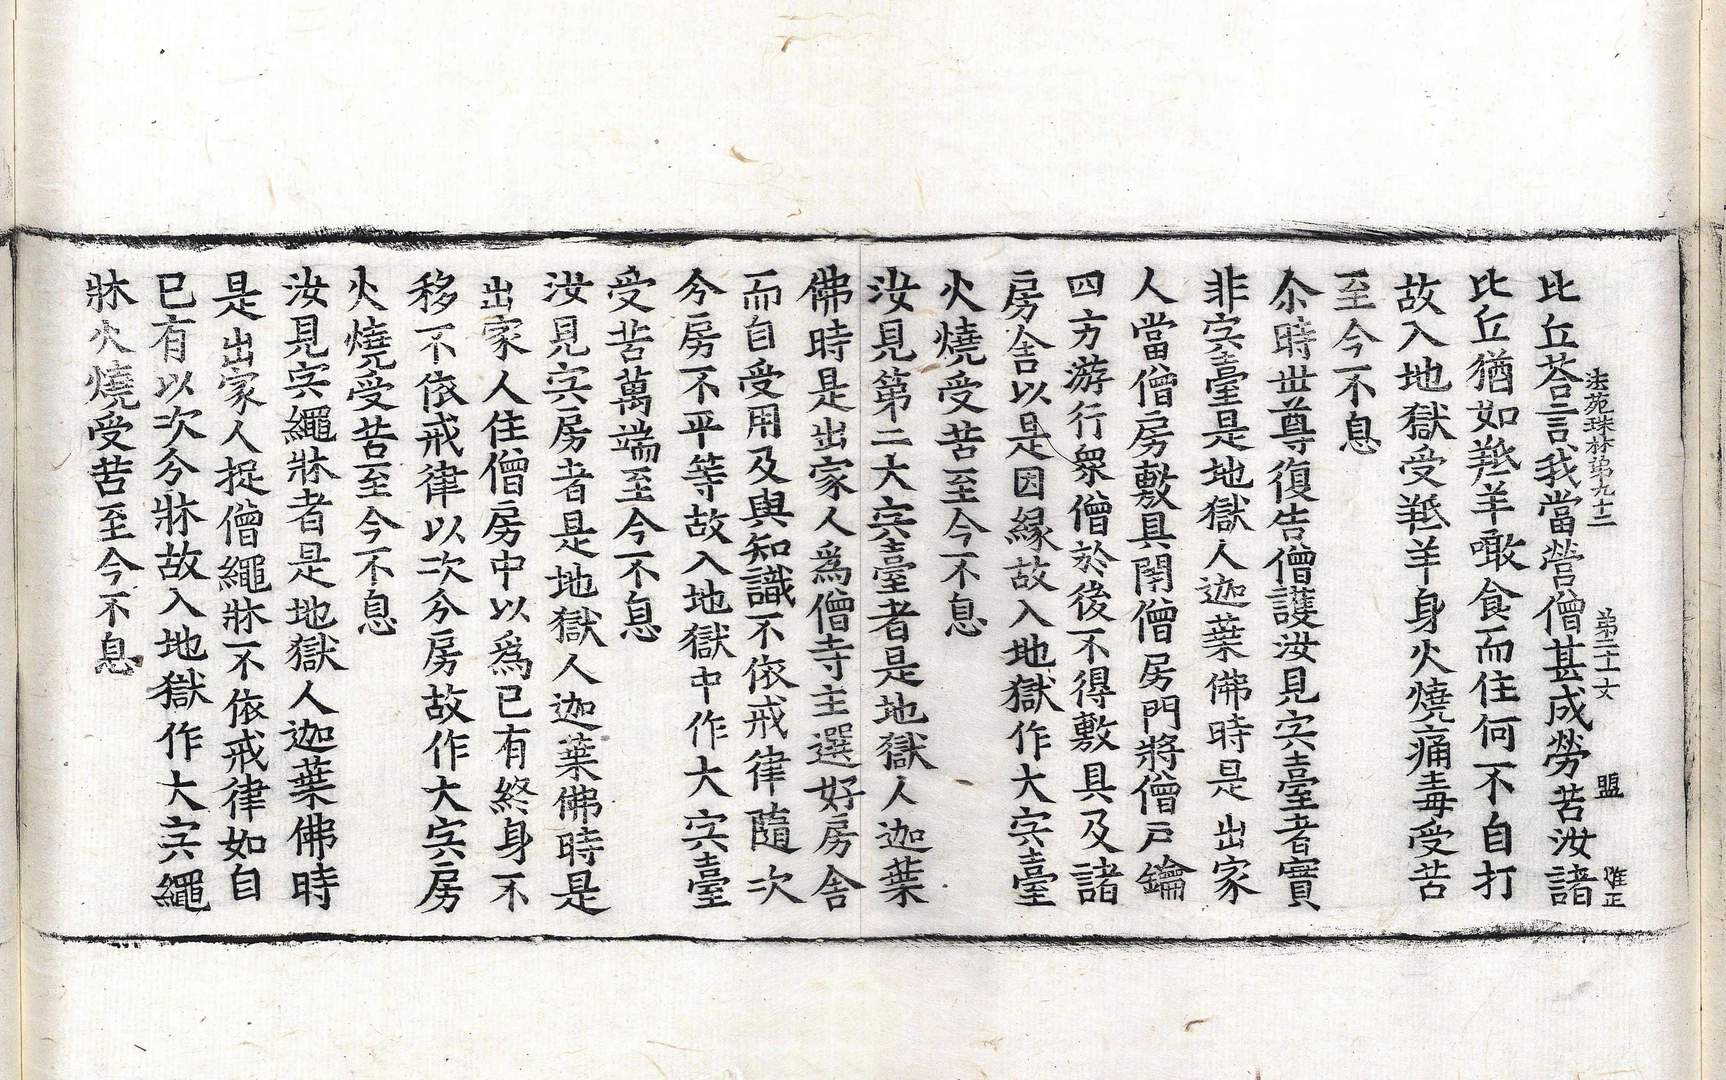 法苑珠林第九十二 第二十一丈 盟 惟正
比丘荅言我當營僧甚成勞苦汝諸
比丘猶如羝羊噉食而住何不自打
故入地獄受羝羊身火燒痛毒受苦
至今不息
尒時世尊復告僧護汝見宍臺者實
非宍臺是地獄人迦葉佛時是出家
人當僧房敷具閉僧房門將僧戶鑰
四方游行衆僧於後不得敷具及諸
房舍以是因縁故入地獄作大宍臺
火燒受苦至今不息
汝見第二大宍臺者是地獄人迦葉
佛時是出家人爲僧寺主選好房舍
而自受用及與知識不依戒律隨次
今房不平等故入地獄中作大宍臺
受苦萬端至今不息
汝見宍房者是地獄人迦葉佛時是
出家人住僧房中以爲已有終身不
移不依戒律以次分房故作大宍房
火燒受苦至今不息
汝見宍繩牀者是地獄人迦葉佛時
是出家人捉僧繩牀不依戒律如自
已有以次分牀故入地獄作大宍繩
牀火燒受苦至今不息